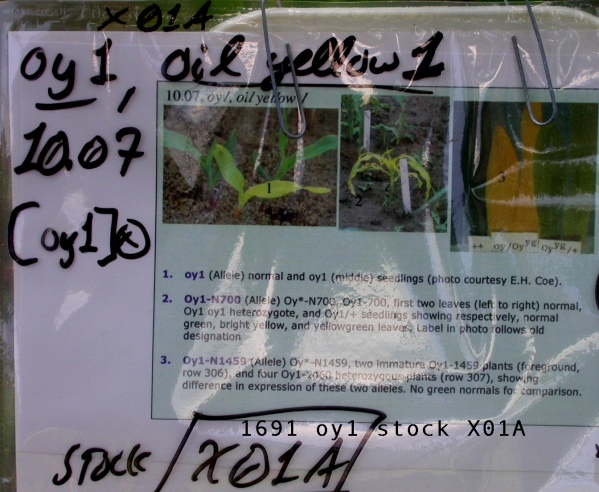 X01A
oy1, oil yellow 1
10.07
[oy1]
10.07, oy1, oil yellow 1
1
2
3
1. oy1 (Allele) normal and oy1 (middle) seedlings (photo courtesy E.H. Coe).
2. Oy1-N700 (Allele) Oy*-N700, Oy1-700, first two leaves (left to right) normal,
Oy1 oy1 heterozygote, and Oy1/+ seedlings showing respectively, normal
green, bright yellow, and yellowgreen leaves. Label in photo follows old
designation
3. Oy1-N1459 (Allele) Oy*-N1459, two immature Oy1-1459 plants (foreground,
row 306), and four heterozygous plants (row 307), showing
difference in expression of these two alleles. No green normals for comparison.
1691 oy1 stock X01A
STOCK X01A